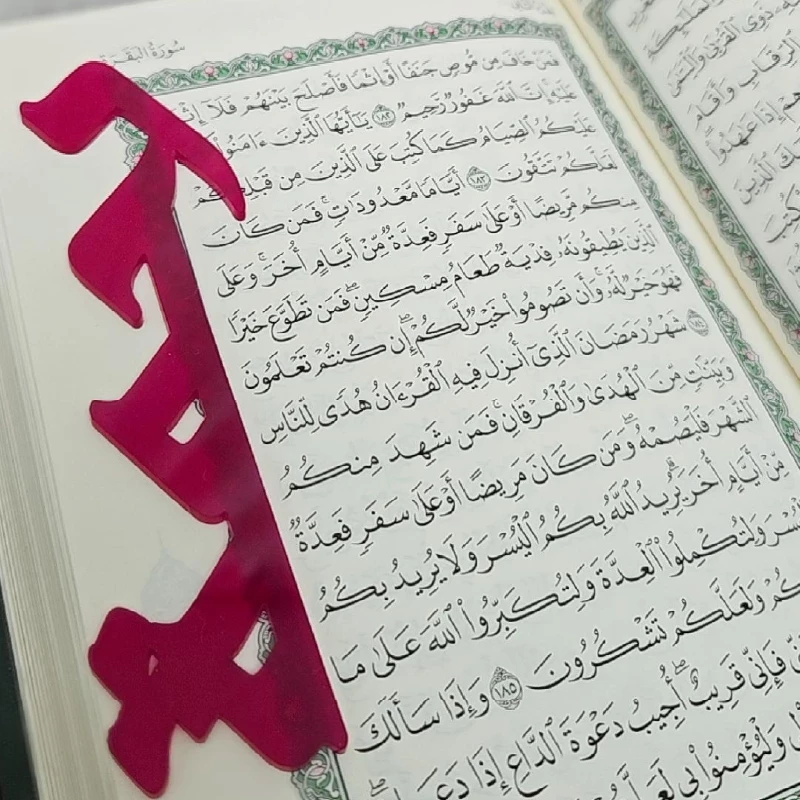 سُورَةُ البَقَرَةِ
فَمَنْ خَافَ مِن مُّوصٍ جَنَفًا أَوْ إِثْمًا فَأَصْلَحَ بَيْنَهُمْ فَلَآ إِثْمَ
عَلَيْهِ إِنَّ ٱللَّهَ غَفُورٌ رَّحِيمٌ ١٨٢ يَٰٓأَيُّهَا ٱلَّذِينَ ءَامَنُوا۟
عَلَيْكُمُ ٱلصِّيَامُ كَمَا كُتِبَ عَلَى ٱلَّذِينَ مِن قَبْلِكُمْ
لَعَلَّكُمْ تَتَّقُونَ ١٨٣ أَيَّامًا مَّعْدُودَٰتٍ ۚ فَمَن كَانَ
مِنكُم مَّرِيضًا أَوْ عَلَىٰ سَفَرٍ فَعِدَّةٌ مِّنْ أَيَّامٍ أُخَرَ ۚ وَعَلَى
ٱلَّذِينَ يُطِيقُونَهُۥ فِدْيَةٌ طَعَامُ مِسْكِينٍ ۖ فَمَن تَطَوَّعَ خَيْرًا
فَهُوَ خَيْرٌ لَّهُۥ ۚ وَأَن تَصُومُوا۟ خَيْرٌ لَّكُمْ ۖ إِن كُنتُمْ تَعْلَمُونَ
١٨٤ شَهْرُ رَمَضَانَ ٱلَّذِىٓ أُنزِلَ فِيهِ ٱلْقُرْءَانُ هُدًى لِّلنَّاسِ
وَبَيِّنَٰتٍ مِّنَ ٱلْهُدَىٰ وَٱلْفُرْقَانِ ۚ فَمَن شَهِدَ مِنكُمُ
ٱلشَّهْرَ فَلْيَصُمْهُ ۖ وَمَن كَانَ مَرِيضًا أَوْ عَلَىٰ سَفَرٍ فَعِدَّةٌ
مِّنْ أَيَّامٍ أُخَرَ ۗ يُرِيدُ ٱللَّهُ بِكُمُ ٱلْيُسْرَ وَلَا يُرِيدُ بِكُمُ
ٱلْعُسْرَ وَلِتُكْمِلُوا۟ ٱلْعِدَّةَ وَلِتُكَبِّرُوا۟ ٱللَّهَ عَلَىٰ مَا
وَلَعَلَّكُمْ تَشْكُرُونَ ١٨٥ وَإِذَا سَأَلَكَ
فَإِنِّى قَرِيبٌ ۖ أُجِيبُ دَعْوَةَ ٱلدَّاعِ إِذَا دَعَانِ ۖ
وَلْيُؤْمِنُوا۟ بِى لَعَلَّهُمْ
ذَوِى ٱلْقُرْبَىٰ وَٱلْيَتَٰمَىٰ
ٱلرِّقَابِ وَأَقَامَ
إِذَا عَٰهَدُوا۟
ٱلَّذِينَ
كُتِبَ